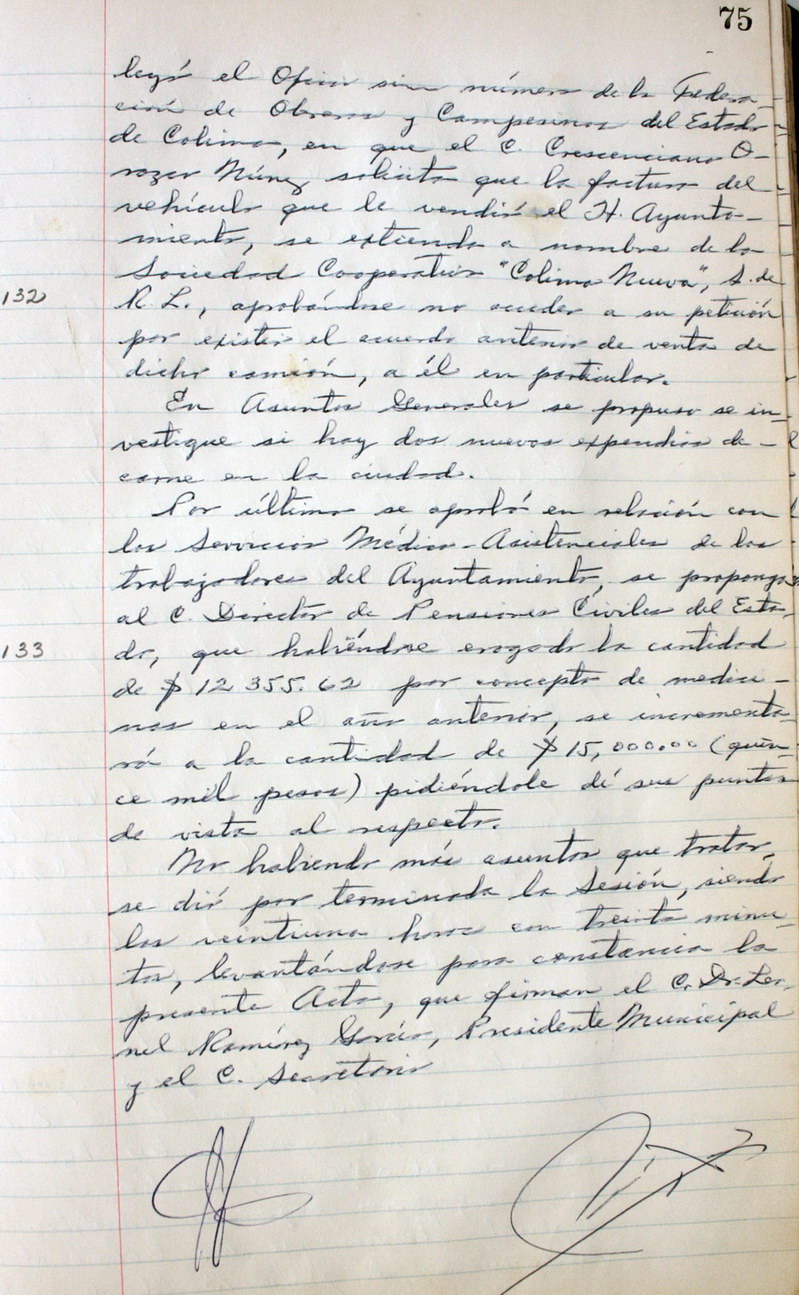 75
leyó el Oficio sin número de la Federa-
ción de Obreros y Campesinos del Estado
de Colima, en que el C. Crescenciano O-
rozco Núñez solicita que la factura del
vehículo que le vendió el H. Ayunta-
miento, se extienda a nombre de la
Sociedad Cooperativa "Colima Nueva", S. de
132 R. L., aprobándose no acceder a su petición
por existir el acuerdo anterior de venta de
dicho camión, a él en particular.
En Asuntos Generales se propuso se in-
vestigue si hay dos nuevos expendios de-
carne en la ciudad.
Por último se aprobó en relación con
los Servicios Médico-Asistenciales de los
trabajadores del Ayuntamiento, se proponga
al C. Director de Pensiones Civiles del Esta-
133 do, que habiéndose erogado la cantidad
de $12 355.62 por concepto de medici-
nas en el año anterior, se incrementa-
rá a la cantidad de $15,000.00 (quin-
ce mil pesos) pidiéndole dé sus puntos
de vista al respecto.
No habiendo más asuntos que tratar,
se dió por terminada la Sesión, siendo
las veintiuna horas con treinta minu-
tos, levantándose para constancia la
presente Acta, que firman el C. Dr. Leo-
nel Ramírez García, Presidente Municipal
y el C. Secretario